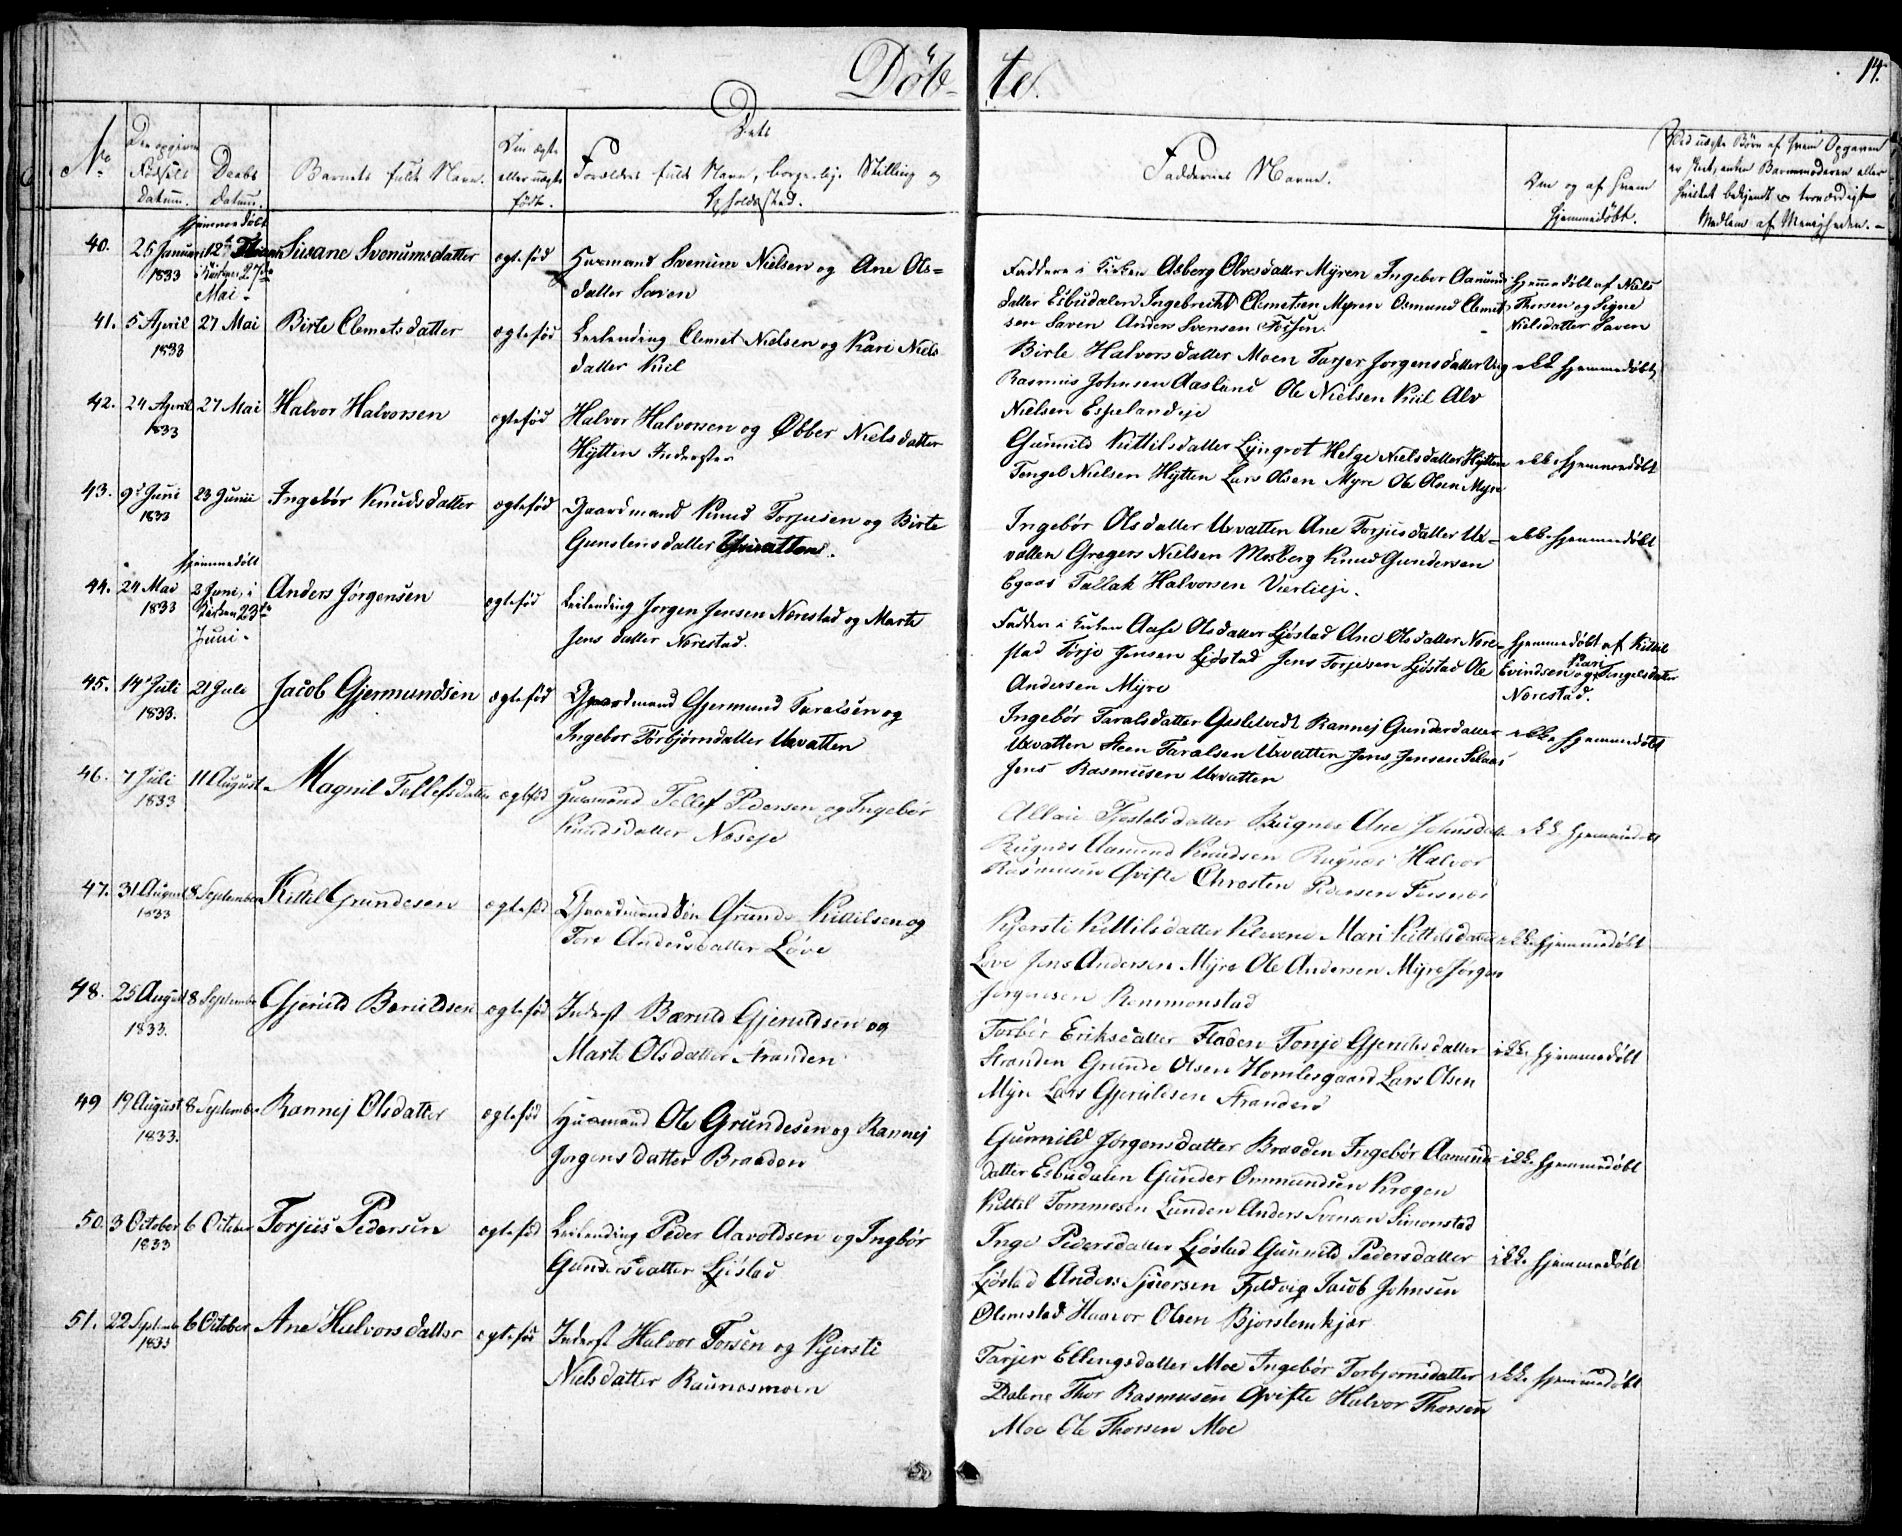 Döb- te.
14.
No
Den opgivne Fødsels Datum.
Daabs Datum.
Barnets fulde Navn.
Om ægte eller uægte født.
Dets Forældres fulde Navn, borgerlige Stilling og Opholdssted.
Faddernes Navne.
Om og af hvem hjemmedøbt.
Ved uægte Børn af hvem Opgaven er skeet, enten Barnemoderen eller hvilket bekjendt og troværdigt Medlem af Menigheden.
40. 25 Januar 1833
hjemmedøbt 12te i Kirken 27de Mai
Susane Svenumsdatter
ægtefød
Huusmand Svenum Nielsen og Ane Ols=
datter Saven
Faddere i Kirken Asberg Olvesdatter Myren Ingebor Aamunds
datter Esbudalen Ingebreckt Clemetsen Myren Osmund Clemet
sen Saven Anders Svensen Fossen
Hjemmedøbt af Niels
Thorsen og Signe
Nielsdatter Saven
41. 5 April 1833
27 Mai
Birte Clemetsdatter
ægtefød
Leilending Clemet Nielsen og Kari Niels
datter Kiil
Birte Halvorsdatter Moen Tarjer Jorgensdatter
Rasmus Johnsen Aasland Ole Nielsen Kiil Alv
Nielsen Espelandeje
ikke hjemmedøbt
42. 24 April 1833
27 Mai
Halvor Halvorsen
ægtefød
Halvor Halvorsen og Øbber Nielsdatter
Hytten Inderster
Gunnild Kittilsdatter Lyngrot Helge Nielsdatter Hytten
Tengel Nielsen Hytten Lars Olsen Myre Ole Olsen Myre
ikke hjemmedøbt
43. 9d Juni 1833
23 Junii
Ingebør Knudsdatter
ægtefød
Gaardmand Knud Torjusen og Birte
Gunstensdatter Uvatten.
Ingebør Olsdatter Uvatten Ane Torjusdatter U=
vatten Gregers Nielsen Mosberg Knud Gundersen
Egaas Tallak Halvorsen Vierlieje.
ikke hjemmedøbt
44. 24 Mai 1833
hjemmedøbt 2 Juni, i Kirken 23de Juni.
Anders Jørgensen
ægtefød
Leilending Jorgen Jensen Norestad og Marte
Jens datter Norestad.
Faddere i Kirken Aase Olsdatter Ljøstad Ane Olsdatter Nore-
stad Torje Jensen Ljöstad Jens Torjesen Ljöstad Ole
Andersen Myre
hjemmedøbt af Kittil
Evindsen og Kari Tengelsdatter
Norestad.
45. 14 Juli 1833.
21 Jule
Jacob Gjermundsen
ægtefød
Gaardmand Gjermund Taralsen og
Ingebor Torbjørndatter Uvatten
Ingebør Taralsdatter Gesletvedt Rannej Gunderdatter
Uvatten Steen Taralsen Uvatten Jens Jensen Selaas
Jens Rasmusen Uvatten
ikke hjemmedøbt
46. 7 Juli 1833
11 August
Magnil Tellefsdatter
ægtefød
Huusmand Tellef Pedersen og Ingebør
Knudsdatter Neseje
Tjostelsdatter Rugnes Ane Johnsdatt
Rugnes Aamund Knudsen Rugnes Halvor
Rasmusen Qvifte Chresten Pedersen
ikke hjemmedøbt
47. 31 August 1833
8 September
Kittel Grundesen
ægtefød
Gaardmand Grunde Kittilsen og
Tore Andersdatter Løve
Kjersti Kittilsdatter Klevene Mari Kittelsdatter
Løve Jens Andersen Myre Ole Andersen Myre Jørgen
Jørgensen Rommenstad
ikke hjemmedøbt
48. 25 August 1833.
8 September
Gjeruld Beruldsen
ægtefød
Inderst Bæruld Gjeruldsen og
Marte Olsdatter Stranden
Torbør Eriksdatter Fladen Tonje Gjeruldsdatter
Stranden Grunde Olsen Homlesgaard Lars Olsen
Myre Lars Gjeruldsen Stranden
ikke hjemmedøbt
49 19 August 1833.
8 September
Rannej Olsdatter
ægtefød
Huusmand Ole Grundesen og Rannej
Jorgensdatter Braaden
Gunnild Jørgensdatter Braaden Ingebør Aamunds
datter Esbudalen Gunder Ommundsen Krogen
Kittil Tommesen Lunden Anders Svensen Simonstad
ikke hjemmedøbt
50. 3 October 1833
6 October
Torjus Pedersen
ægtefød
Leilending Peder Aavoldsen og Ingbør
Gundersdatter Ljöstad
Inge Pedersdatter Ljöstad Gunnild Pedersdatter
Ljöstad Anders Fjeldvig Jacob Johnsen
Ølemstad Haavor Olsen
ikke hjemmedøbt
51. 22 Septembe 1833
6 October
Ane Halvorsdatter
ægtefød
Inderst Halvor Torsen og Kjersti
Nielsdatter Raunesmoen
Tarjer Ellengsdatter Moe Ingebør Torbjornsdatter
Dalene Thor Rasmusen Qvifte Halvor Thorsen
Moe Ole Thorsen Moe
ikke hjemmedøbt